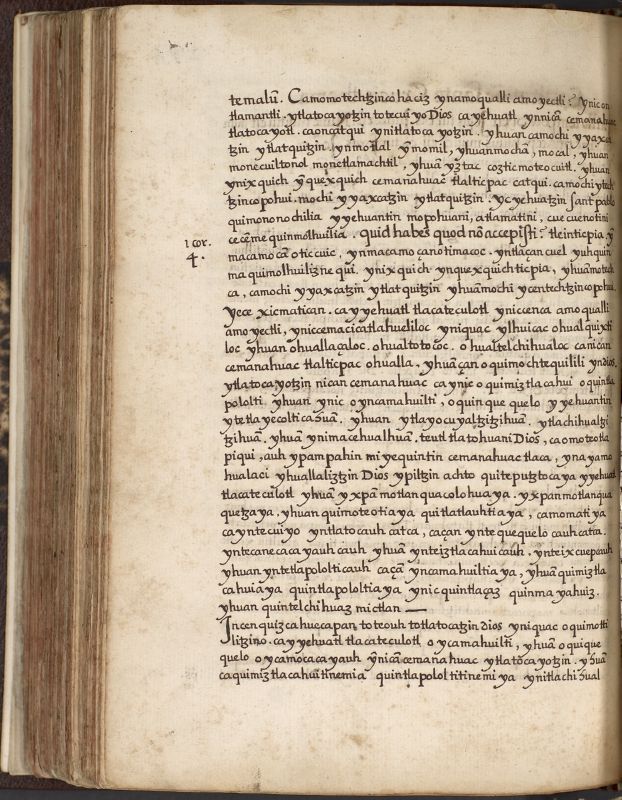 temalū. Camomotechtzinco haciz ynamo qualli amo yectli? ynic on
tlamantli. ytlatocayotzin totecuiyo Dios ca yehuatl ynnicā cemanahuac
tlatocayotl. caoncatqui ynitlatocayotzin. yhuan camochi yyaxca
tzin ytlatquitzin. ynmotlal ȳmomil, yhuan mochā, mocal, yhuan
monecuiltonol monetlamachtil, yhuā yztac coztic meteocuitl. yhuan
ynixquich ȳquexquich cemanahuac tlalticpac catqui. camochi ytech
tzinco pohui. mochi yyaxcatzin ytlatquitzin. yc yehuatzin sant pablo
quimononochilia yyehuantin mopohuani, atlamatini, cuecuenotini
cecēme quinmolhuilia. quid habes quod nō accepisti? tleinticpia ȳ
1 cor.
4.
macamo cā oticcuic, ynmacamo çano timacoc. yntlaçan cuel yuhquin
ma quimolhuiliznequi. ynixquich ynquexquich ticpia, yhuā motech
ca, camochi yyaxcatzin ytlatquitzin yhuā mochi ycentechtzinco pohui.
yece xicmatican. ca yyehuatl tlacatecolotl yniccenca amo qualli
amo yectli, yniccemacicatlahueliloc yniquac ylhuicac ohualquixti
loc yhuan ohuallaçaloc. ohualtotococ. ohualtelchihualoc canican
cemanahuac tlalticpac ohualla. yhuā çan oquimochtequilili yn dios.
ytlatocayotzin nican cemanahuac ca ynic oquimiztlacahui oquintla
pololti yhuan ynic oyncamahuilti, oquinquequelo yyehuantin
ytetlayecolticahuā. yhuan ytlayocuyaltzitzihuā. ytlachihualtzi
tzihuā. yhuā ynimacehualhuā. teutl tlatohuani Dios, caomoteotla
piqui, auh ypampa hin miyequintin cemanahuac tlaca, ynayamo
hualaci yhuallaliztzin Dios ypiltzin achto quiteputztocaya yyehuatl
tlacatecolotl yhuā yxpā motlanquacolohuaya. yxpan motlanqua
quetzaya. yhuan quimoteotiaya quitlatlauhtiaya, camomatiya
ca yntecuiyo yntlatocauh catca, caçan yntequequelocauh catca.
yntecanecacayauhcauh yhuā ynteiztlacahuicauh. ynteixcuepcauh
yhuan yntetlapololticauh caçā yncamahuiltiaya, yhuā quimiztla
cahuiaya quintlapololtiaya ynic quintlaçaz quinmayahuiz.
yhuan quintelchihuaz mictlan —
Incenquizcahuecapan toteouh totlatocatzin dios yniquac oquimotti
litzino. ca yyehuatl tlacatecolotl oyc amahuilti, yhuā oquique
quelo oyca mocacayauh ȳnicā cemanahuac ytlatōcayotzin. yhuā
ca quimiztlacahuitinemia quintlapololtitinemiya ynitlachihual